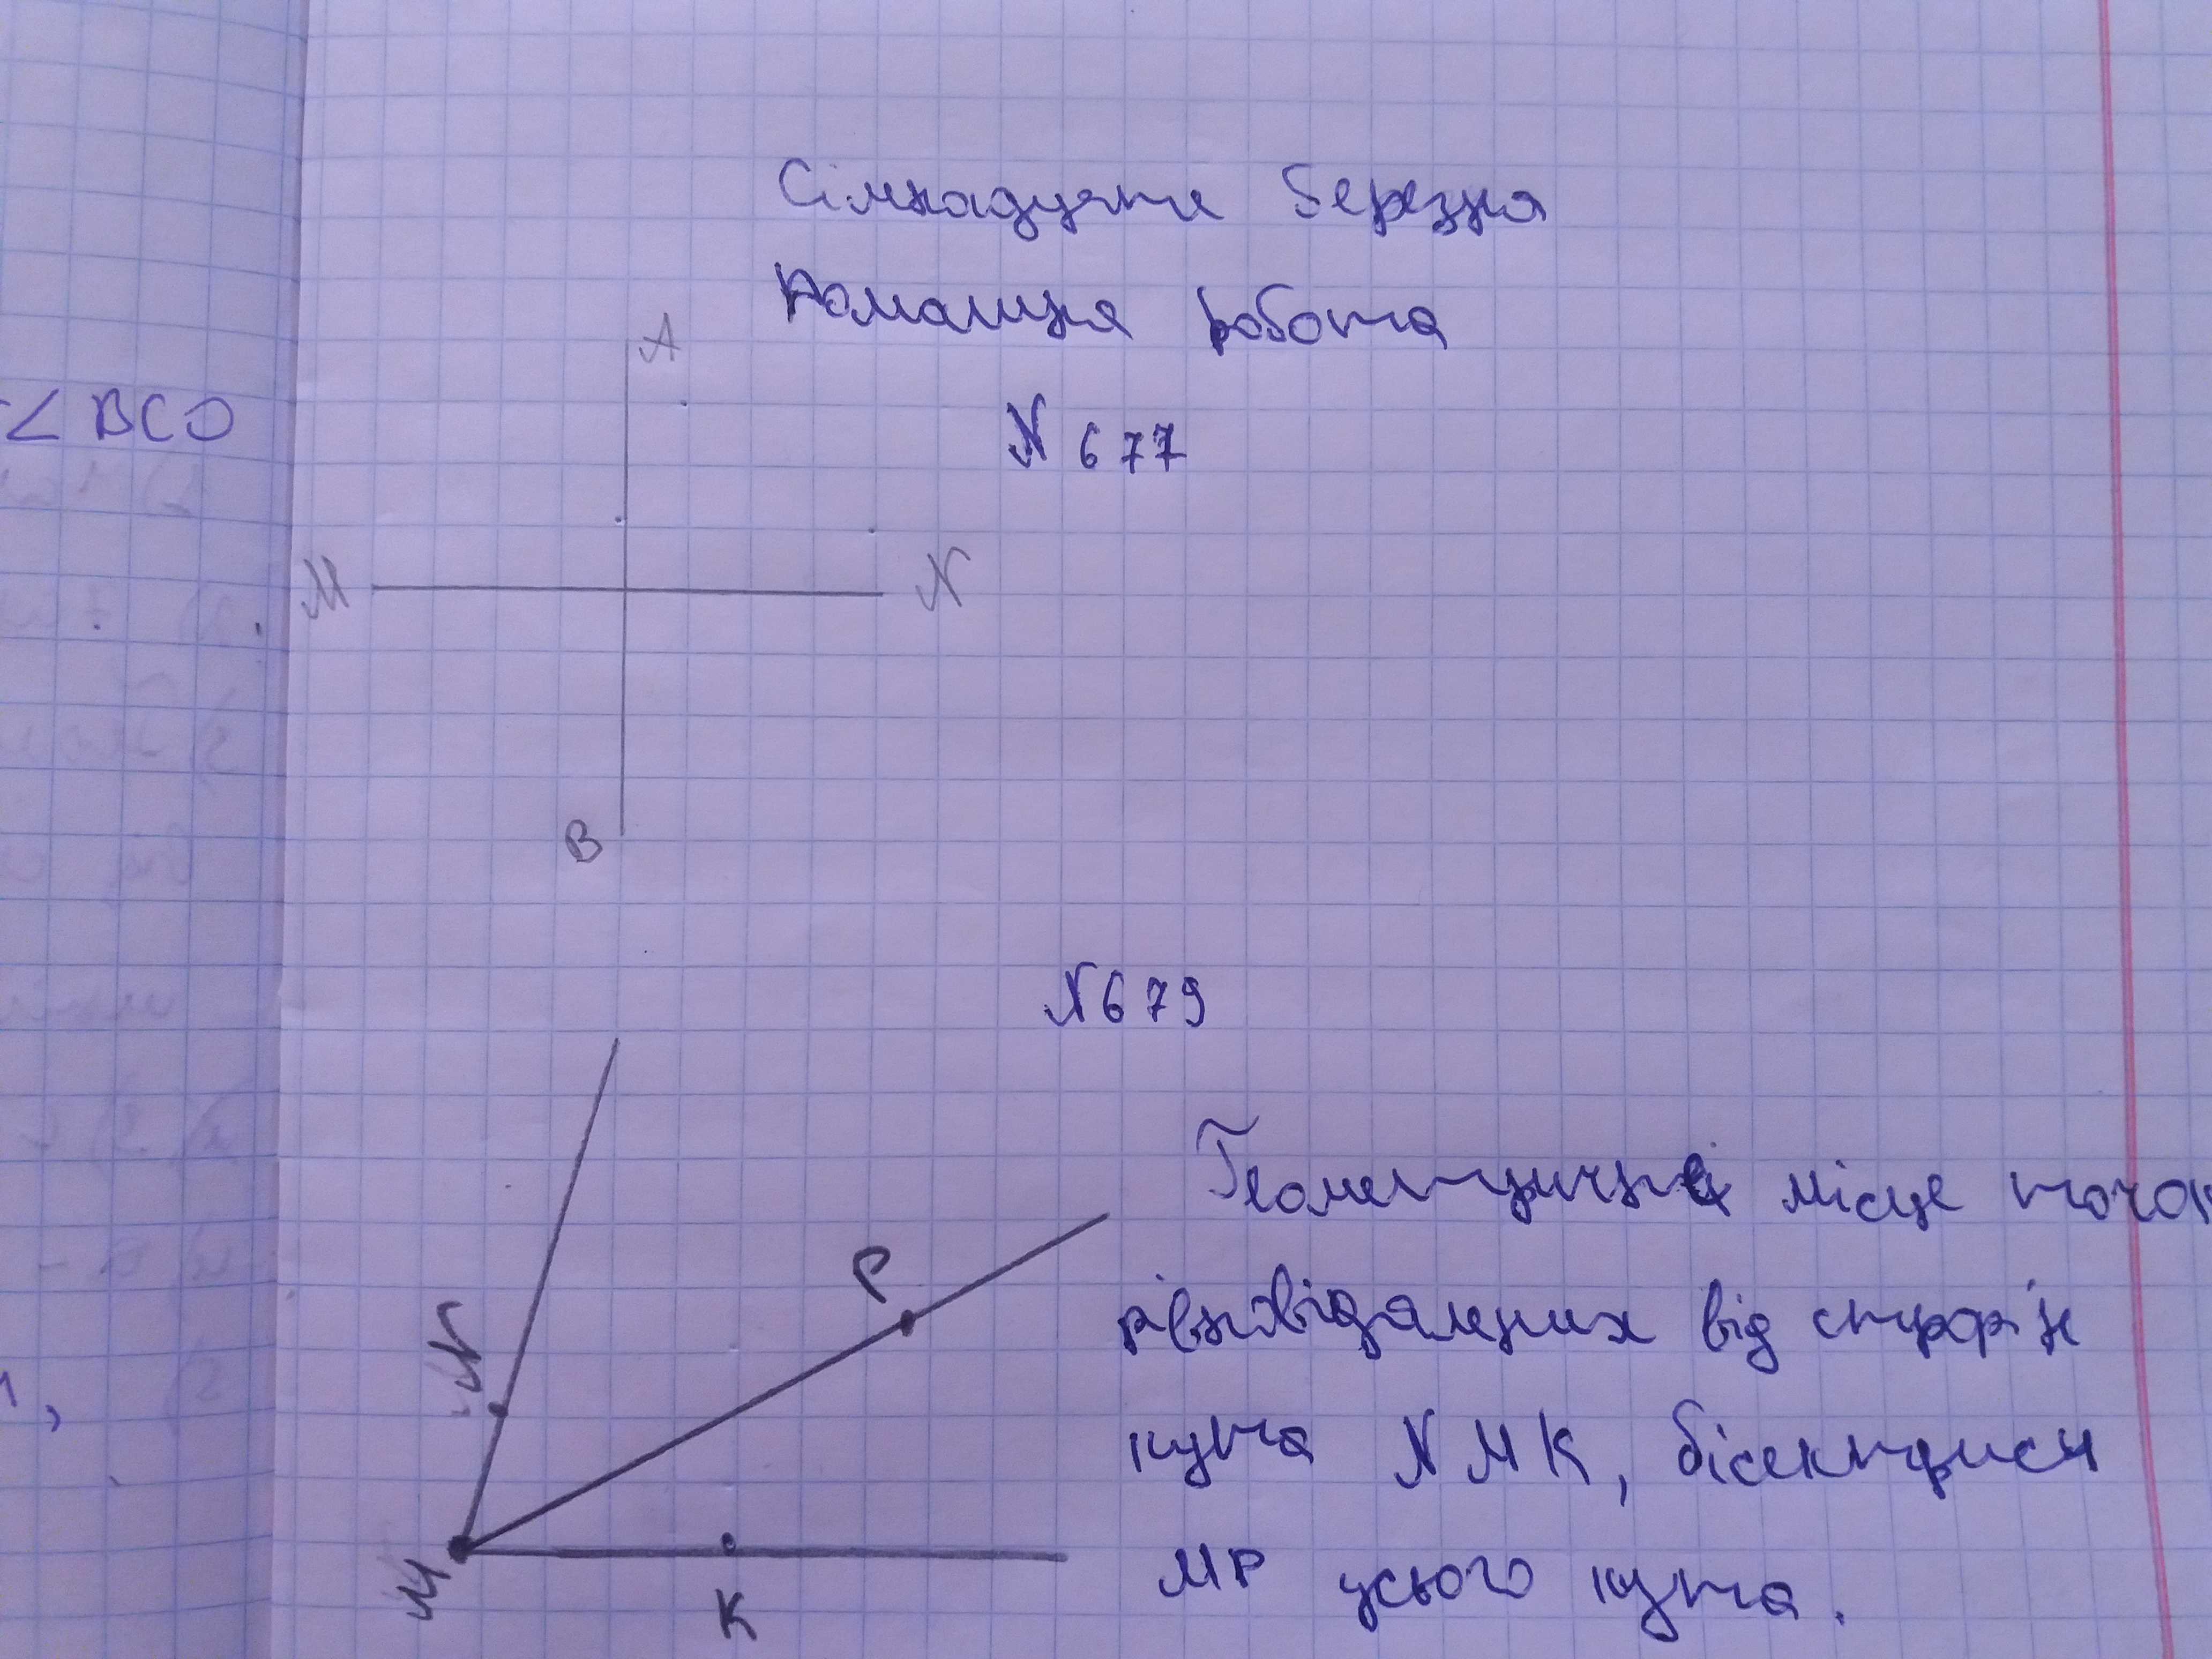 Сімнадцяте березня
Домашня робота
A
< BCO
N 677
M N
B
N 679
Геометричне місце точок
рівновіддалених від сторін
P
N
кута NMK, бісектриси
M
MP цього кута.
K